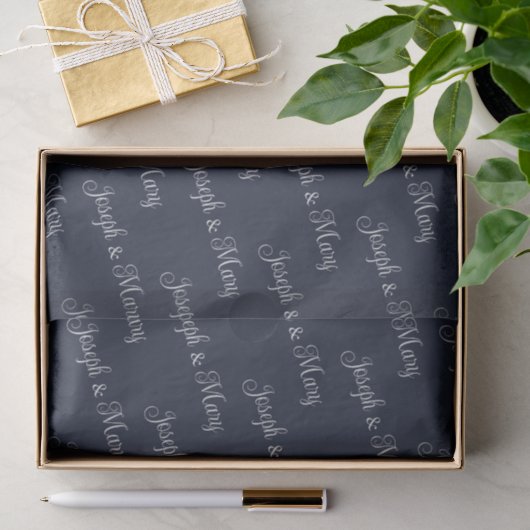 Mary
Joseph & Mary
Joseph & Mary
Joseph & Mary
Joseph & Mary
Joseph & Mary
Joseph & Mary
Joseph & Mary
Joseph & Mary
Joseph & Mary
Joseph & Mary